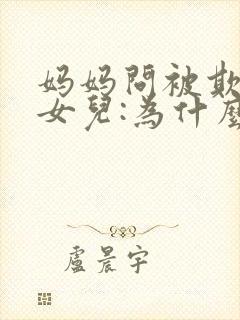 妈妈問被欺
女兒:為什麼
盧晨宇